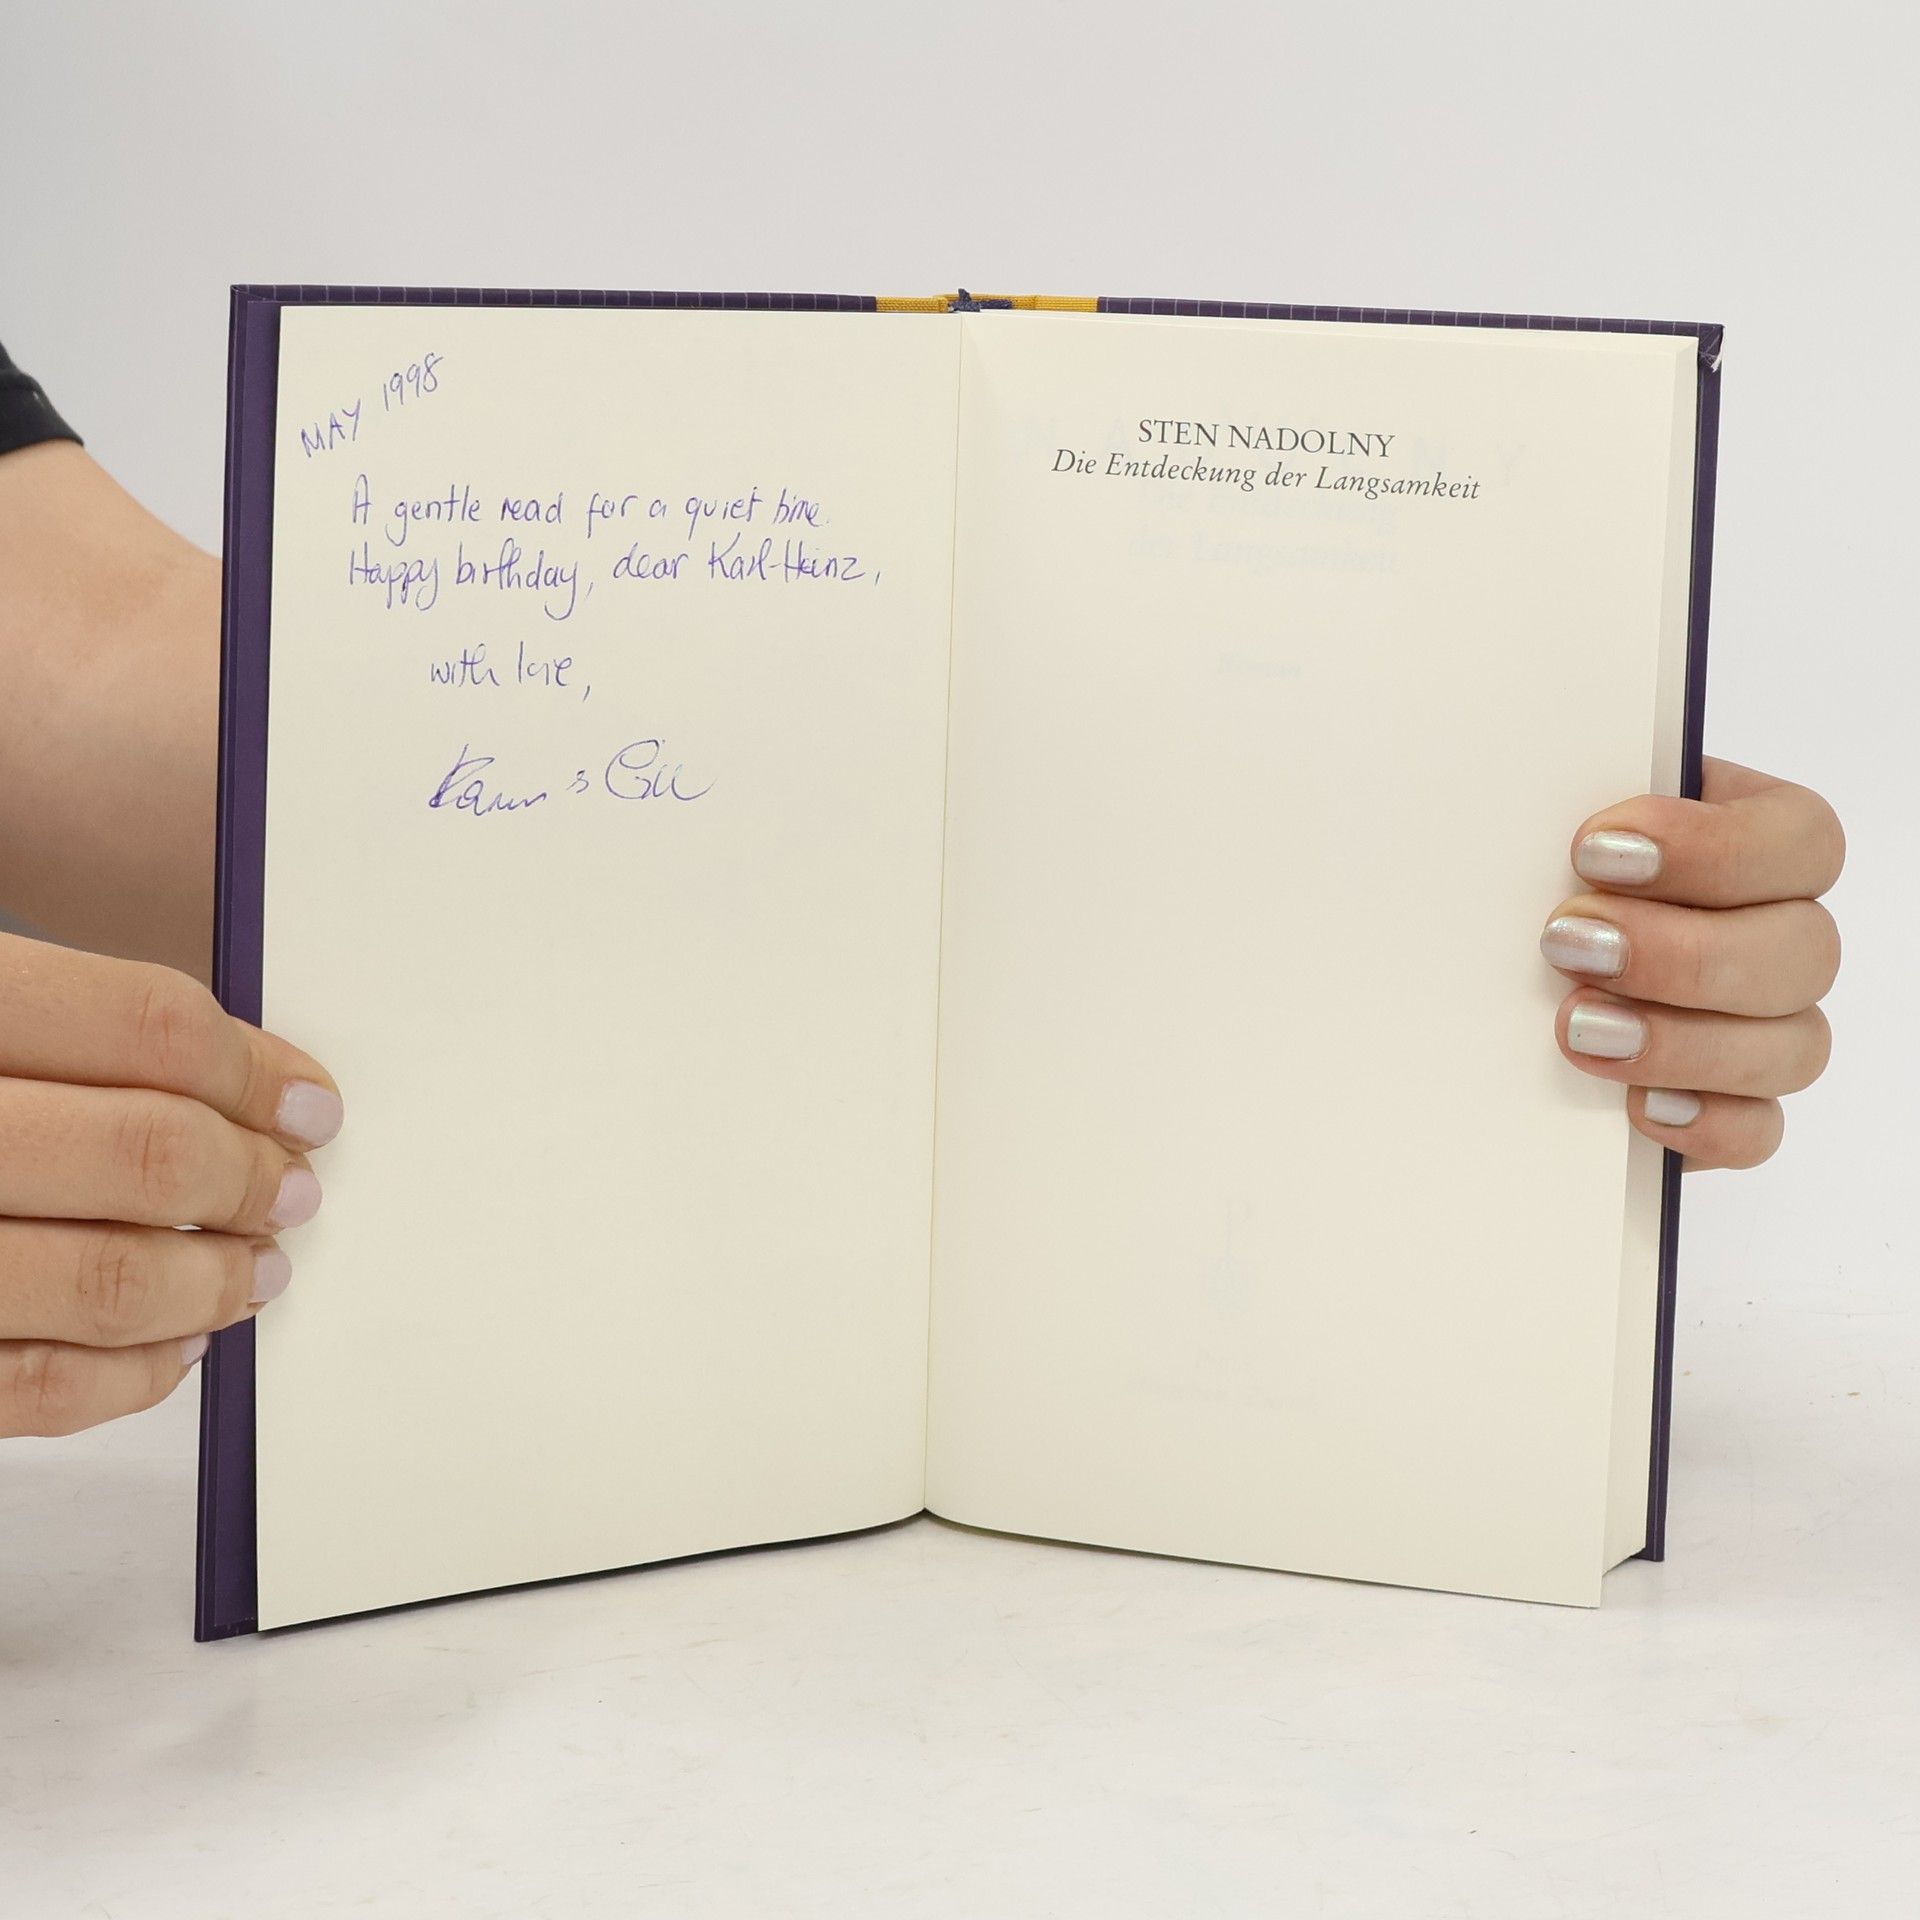 MAY 1998
A gentle read for a quiet time.
Happy birthday, dear Karl-Heinz,
with love,
STEN NADOLNY
Die Entdeckung der Langsamkeit